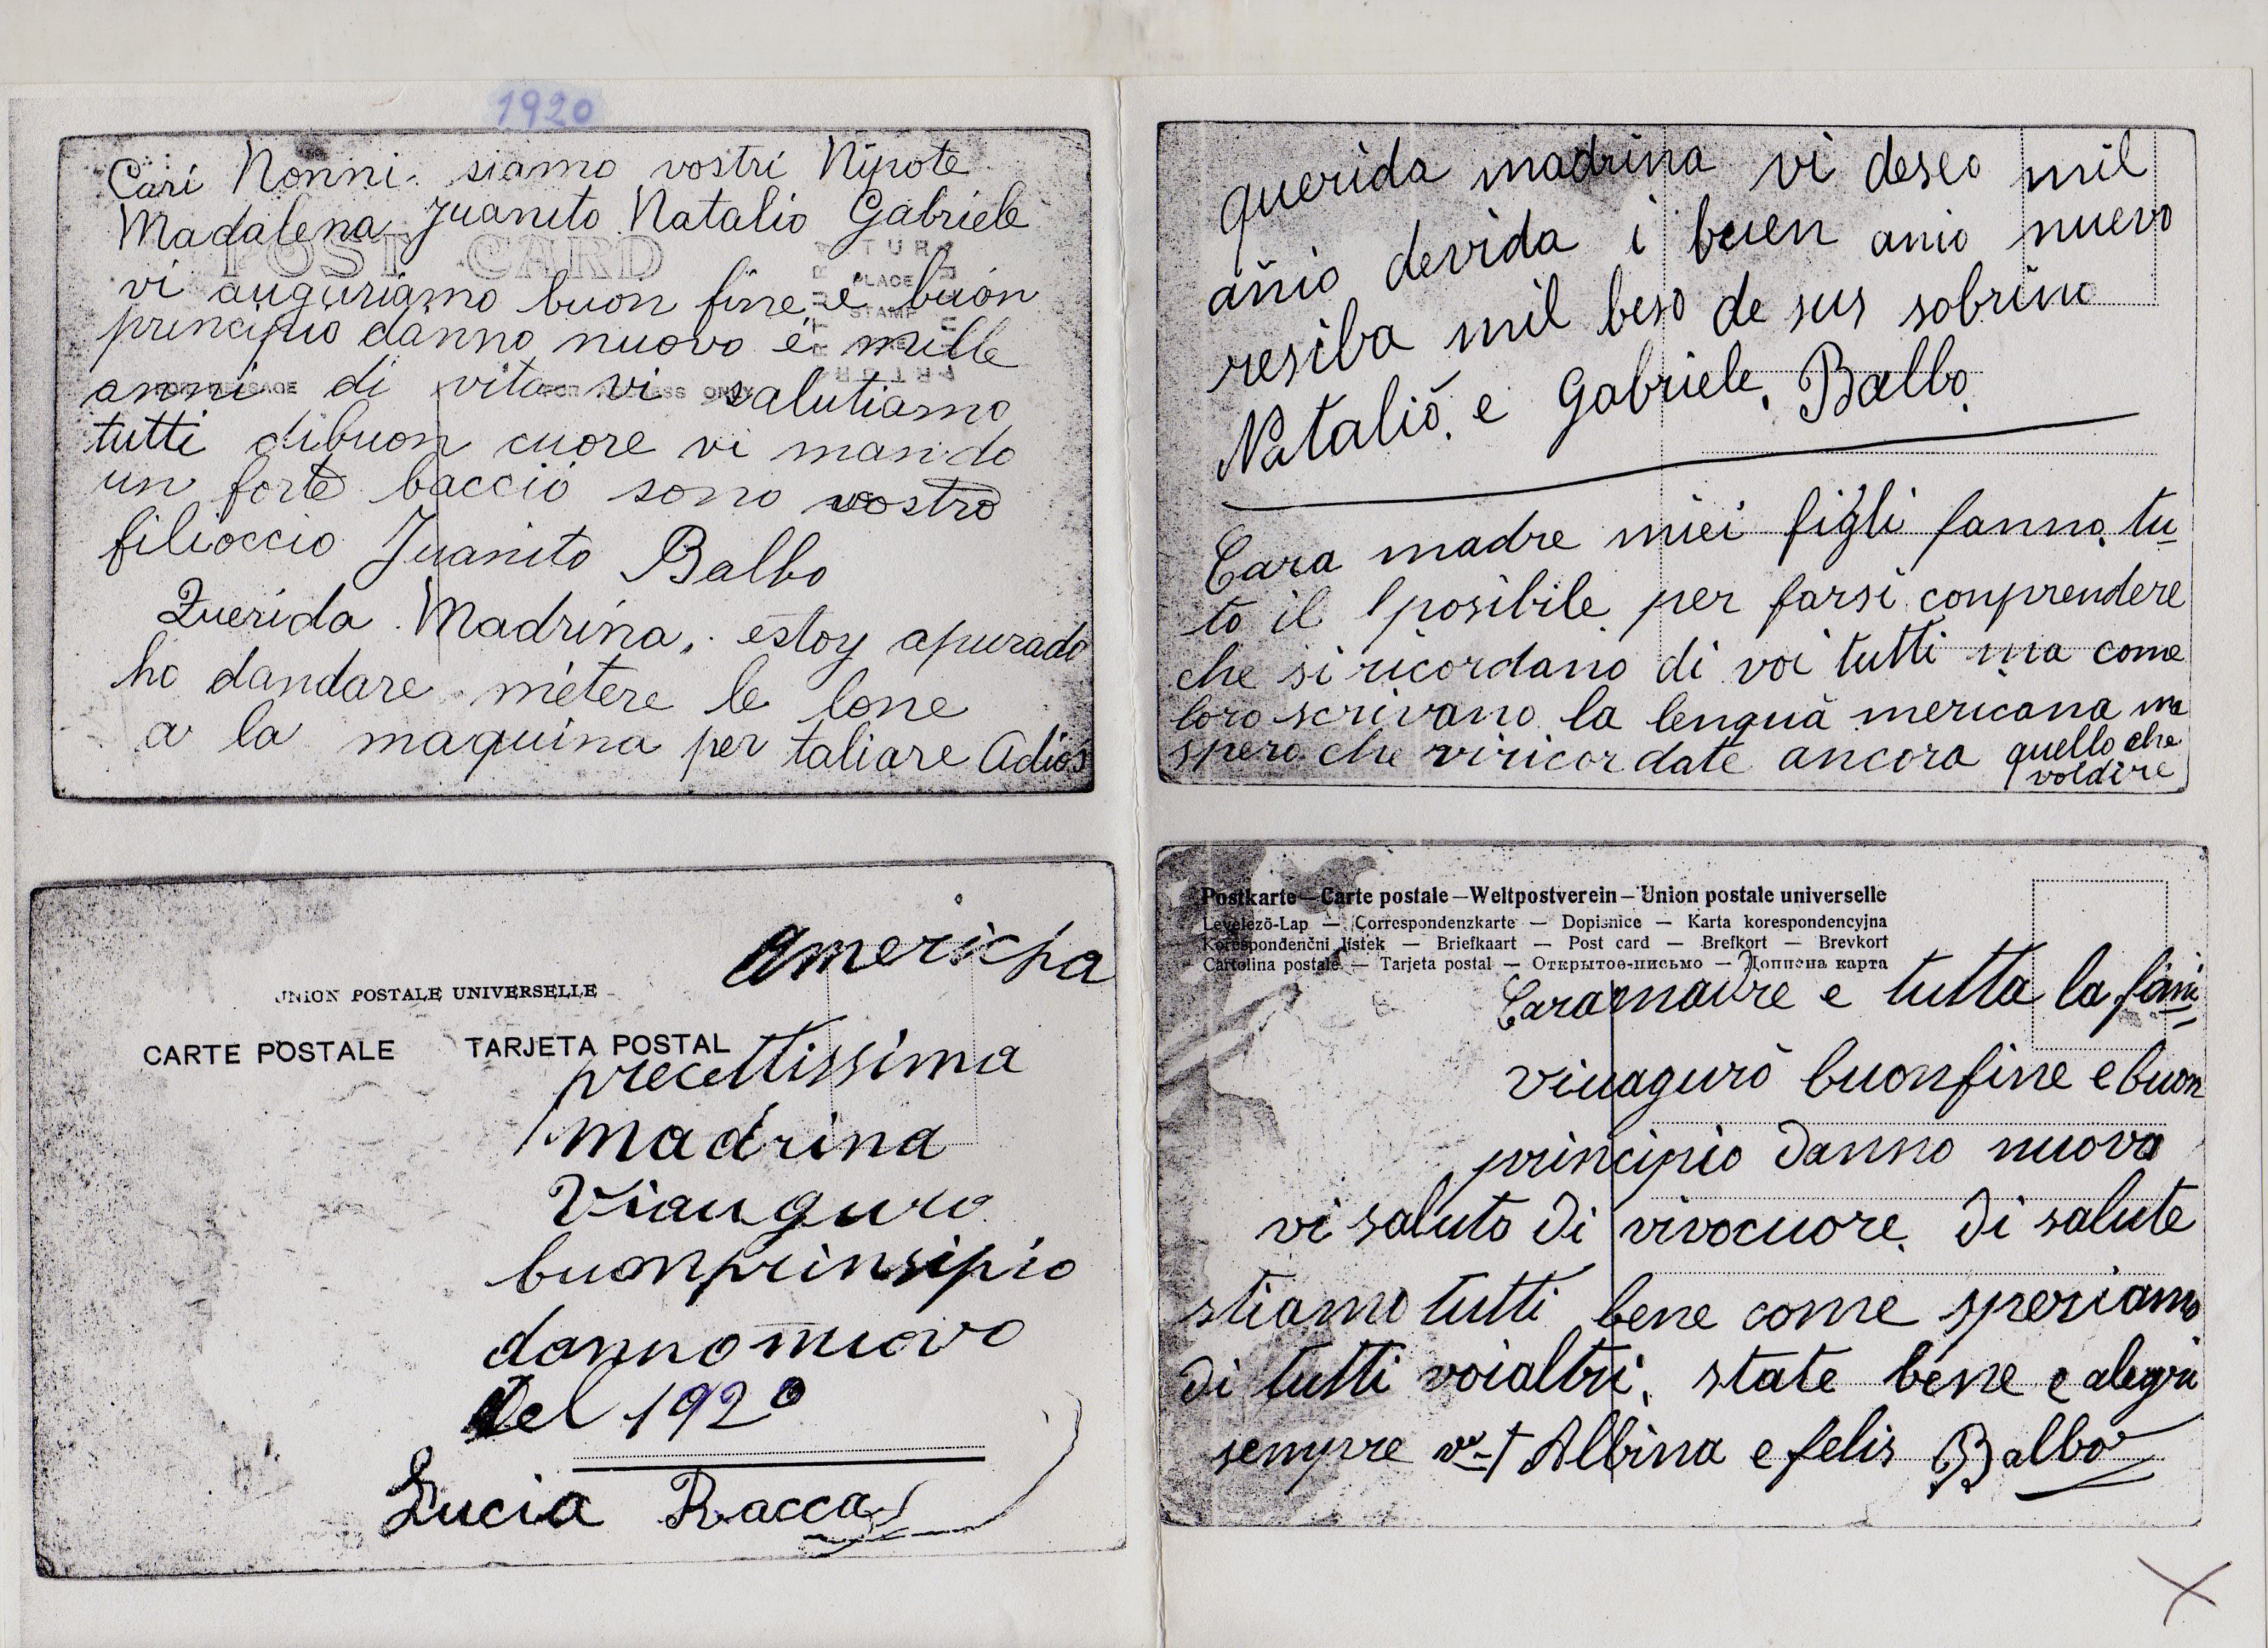 1920
Cari Nonni. siamo vostri Nipote
Madalena Juanito Natalio Gabriele
POST CARD
PLACE
STAMP
vi auguriamo buon fine e buon
principio danno nuovo e mille
anni di vita vi salutiamo
tutti dibuon cuore vi mando
un forte baccio sono vostro
filioccio Juanito Balbo
Querida Madrina, estoy apurado
ho dandare metere le lone
a la maquina per taliare Adios
querida madrina vi deseo mil
añio devida i buen anio nuevo
resiba mil beso de sus sobrino
Natalio e Gabriele. Balbo.
Cara madre miei figli fanno tu
to il posibile per farsi conprendere
che si ricordano di voi tutti ma come
loro scrivano la lengua mericana ma
spero che viricordate ancora quello che
voldire
Americha
UNION POSTALE UNIVERSELLE
CARTE POSTALE TARJETA POSTAL
precettissima
madrina
Viauguro
buonprinsipio
dannonuovo
Del 1920
Lucia Racca
Postkarte—Carte postale—Weltpostverein—Union postale universelle
Levelező-Lap — Correspondenzkarte — Dopisnice — Karta korespondencyjna
Korespondenční listek — Briefkaart — Post card — Brefkort — Brevkort
Cartolina postale — Tarjeta postal — Открытое-письмо — Дописна карта
Caramadre e tutta la fami
viuaguro buonfine e buon
principio danno nuovo
vi saluto di vivocuore. di salute
stiamo tutti bene come speriamo
di tutti voialtri. state bene e alegri
sempre Albina e felis Balbo